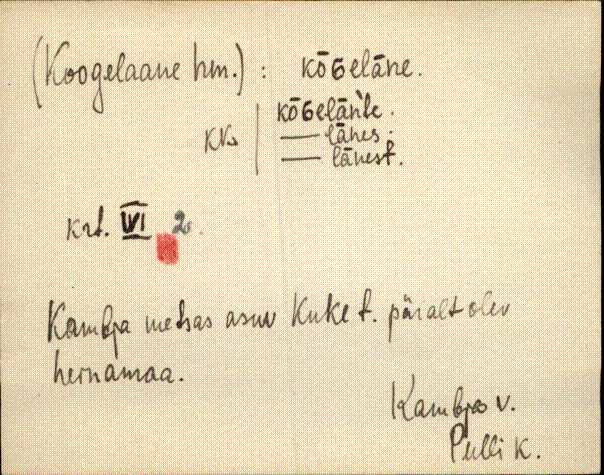 (Koogelaane hm.) : kōɢelāne.
kōɢelānt̀e.
KNo —— lānes.
—— lānest.
krt. VI 2.
Kambja metsas asuv Kuke t. päralt olev
heinamaa.
Kambja v.
Pulli k.